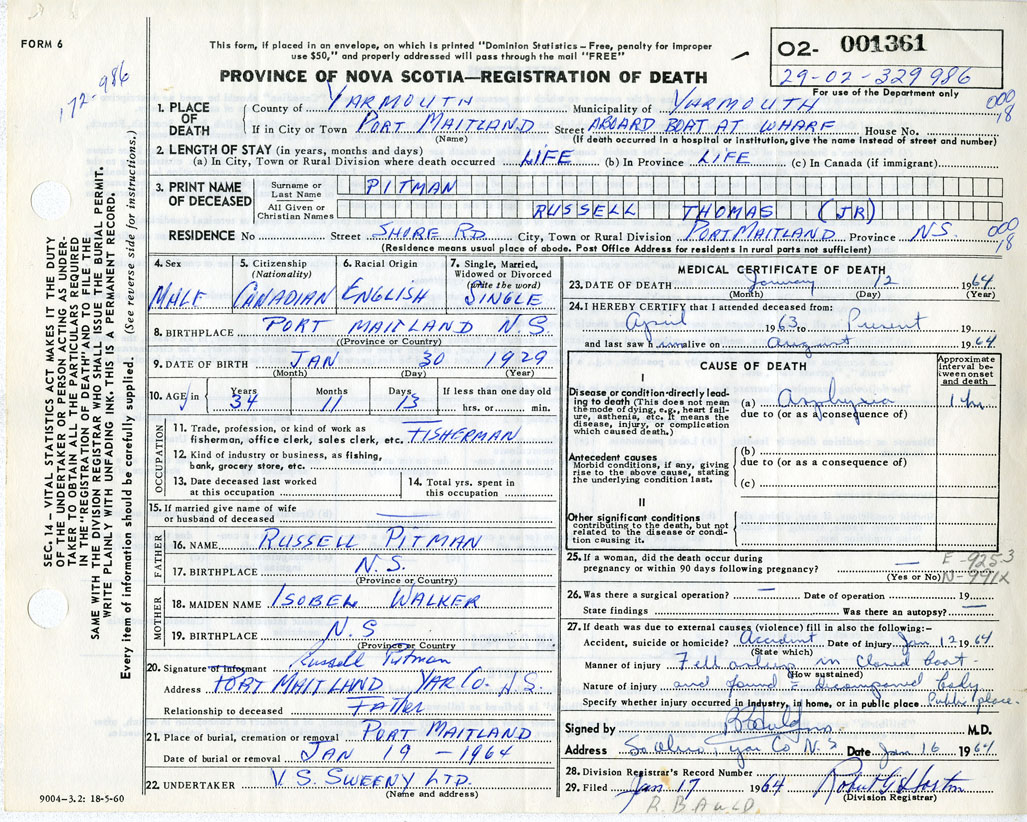 FORM 6
This form, if placed in an envelope, on which is printed "Dominion Statistics – Free, penalty for improper
use $50," and properly addressed will pass through the mail "FREE"
PROVINCE OF NOVA SCOTIA—REGISTRATION OF DEATH
02- 001361
29-02-329986
For use of the Department only
172-986
000
18
1. PLACE OF DEATH
County of YARMOUTH Municipality of YARMOUTH
If in City or Town PORT MAITLAND Street ABOARD BOAT AT WHARF House No.
(Name) (If death occurred in a hospital or institution, give the name instead of street and number)
2. LENGTH OF STAY (in years, months and days)
(a) In City, Town or Rural Division where death occurred LIFE (b) In Province LIFE (c) In Canada (if immigrant)
3. PRINT NAME OF DECEASED
Surname or Last Name PITMAN
All Given or Christian Names RUSSELL THOMAS (JR)
RESIDENCE No Street SHORE RD City, Town or Rural Division PORT MAITLAND Province N.S.
000
18
(Residence means usual place of abode. Post Office Address for residents in rural parts not sufficient)
4. Sex
MALE
5. Citizenship
(Nationality)
CANADIAN
6. Racial Origin
ENGLISH
7. Single, Married, Widowed or Divorced
(write the word)
SINGLE
8. BIRTHPLACE PORT MAITLAND N.S.
(Province or Country)
9. DATE OF BIRTH JAN 30 1929
(Month) (Day) (Year)
10. AGE in Years 34 Months 11 Days 13 If less than one day old hrs. or min.
OCCUPATION
11. Trade, profession, or kind of work as
fisherman, office clerk, sales clerk, etc. FISHERMAN
12. Kind of industry or business, as fishing,
bank, grocery store, etc.
13. Date deceased last worked
at this occupation
14. Total yrs. spent in
this occupation
15. If married give name of wife
or husband of deceased
FATHER
16. NAME RUSSELL PITMAN
17. BIRTHPLACE N.S.
(Province or Country)
MOTHER
18. MAIDEN NAME ISOBEL WALKER
19. BIRTHPLACE N.S
(Province or Country
20. Signature of Informant Russell Pitman
Address PORT MAITLAND YAR Co. N.S.
Relationship to deceased FATHER
21. Place of burial, cremation or removal PORT MAITLAND
Date of burial or removal JAN 19 – 1964
22. UNDERTAKER V.S. SWEENY LTD.
(Name and address)
9004–3.2: 18-5-60
MEDICAL CERTIFICATE OF DEATH
23. DATE OF DEATH January 12 1964
(Month) (Day) (Year)
24. I HEREBY CERTIFY that I attended deceased from:
April 1963 to Present 19
and last saw him alive on August 1964
CAUSE OF DEATH
Approximate interval between onset and death
I
Disease or condition directly leading to death (This does not mean the mode of dying, e.g., heart failure, asthenia, etc. It means the disease, injury, or complication which caused death.)
(a) Asphyxia 1 hr
due to (or as a consequence of)
Antecedent causes
Morbid conditions, if any, giving rise to the above cause, stating the underlying condition last.
(b)
due to (or as a consequence of)
(c)
II
Other significant conditions
contributing to the death, but not related to the disease or condition causing it.
25. If a woman, did the death occur during
pregnancy or within 90 days following pregnancy?
(Yes or No)
E-925.3
N-991X
26. Was there a surgical operation? Date of operation 19
State findings Was there an autopsy?
27. If death was due to external causes (violence) fill in also the following:–
Accident, suicide or homicide? Accident Date of injury Jan. 12 1964
(State which)
Manner of injury Fell asleep in closed boat
(How sustained)
Nature of injury and found
Specify whether injury occurred in industry, in home, or in public place Public place.
Signed by M.D.
Address Yar Co N.S. Date Jan 16 1964
28. Division Registrar's Record Number
29. Filed Jan. 17 1964 Robert G Horton
(Division Registrar)
SEC. 14 – VITAL STATISTICS ACT MAKES IT THE DUTY
OF THE UNDERTAKER OR PERSON ACTING AS UNDER-
TAKER TO OBTAIN ALL THE PARTICULARS REQUIRED
IN THE "REGISTRATION OF DEATH" AND TO FILE THE
SAME WITH THE DIVISION REGISTRAR WHO SHALL ISSUE THE BURIAL PERMIT.
WRITE PLAINLY WITH UNFADING INK. THIS IS A PERMANENT RECORD.
Every item of information should be carefully supplied. (See reverse side for instructions.)